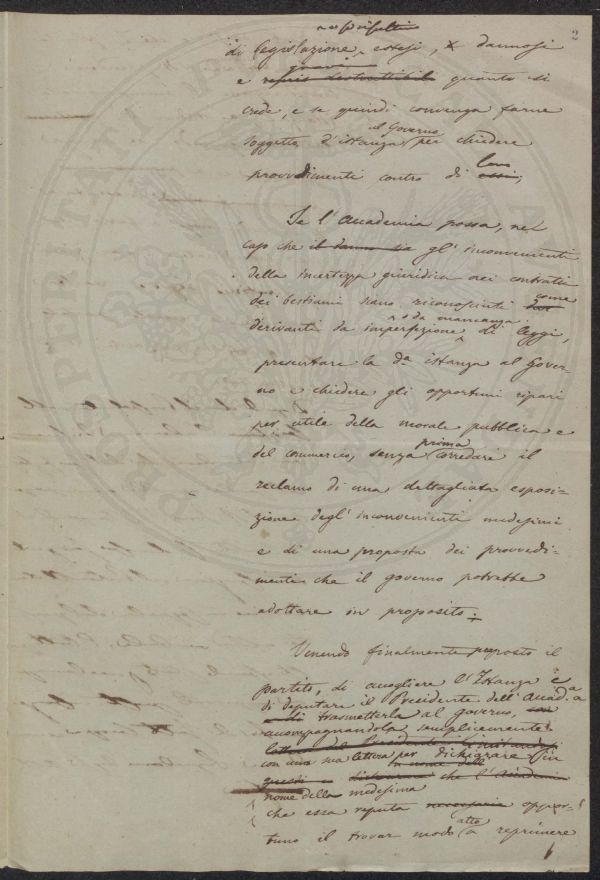 2
di legislazione estesi, dannosi
e gravi quanto si
crede, e se quindi convenga farne
soggetto d'istanza al Governo per chiedere
provvedimenti contro di loro
Se l'Accademia possa, nel
caso che gl'inconvenienti
della incertezza giuridica nei contratti
dei bestiami siano riconosciuti come
derivanti da imperfezione o da mancanza di leggi,
presentare la da istanza al Gover-
no e chiedere gli opportuni ripari
per utile della morale pubblica e
del commercio, senza prima corredare il
reclamo di una dettagliata esposi-
zione degl'inconvenienti medesimi
e di una proposta dei provvedi-
menti che il governo potrebbe
adottare in proposito.
Venendo finalmente proposto il
partito, di accogliere l'Istanza e
di deputare il Presidente dell'Accada
a trasmetterla al governo,
accompagnandola semplicemente
con una sua lettera per dichiarare in
nome della medesima
che essa reputa oppor-
tuno il trovar modo atto a reprimere